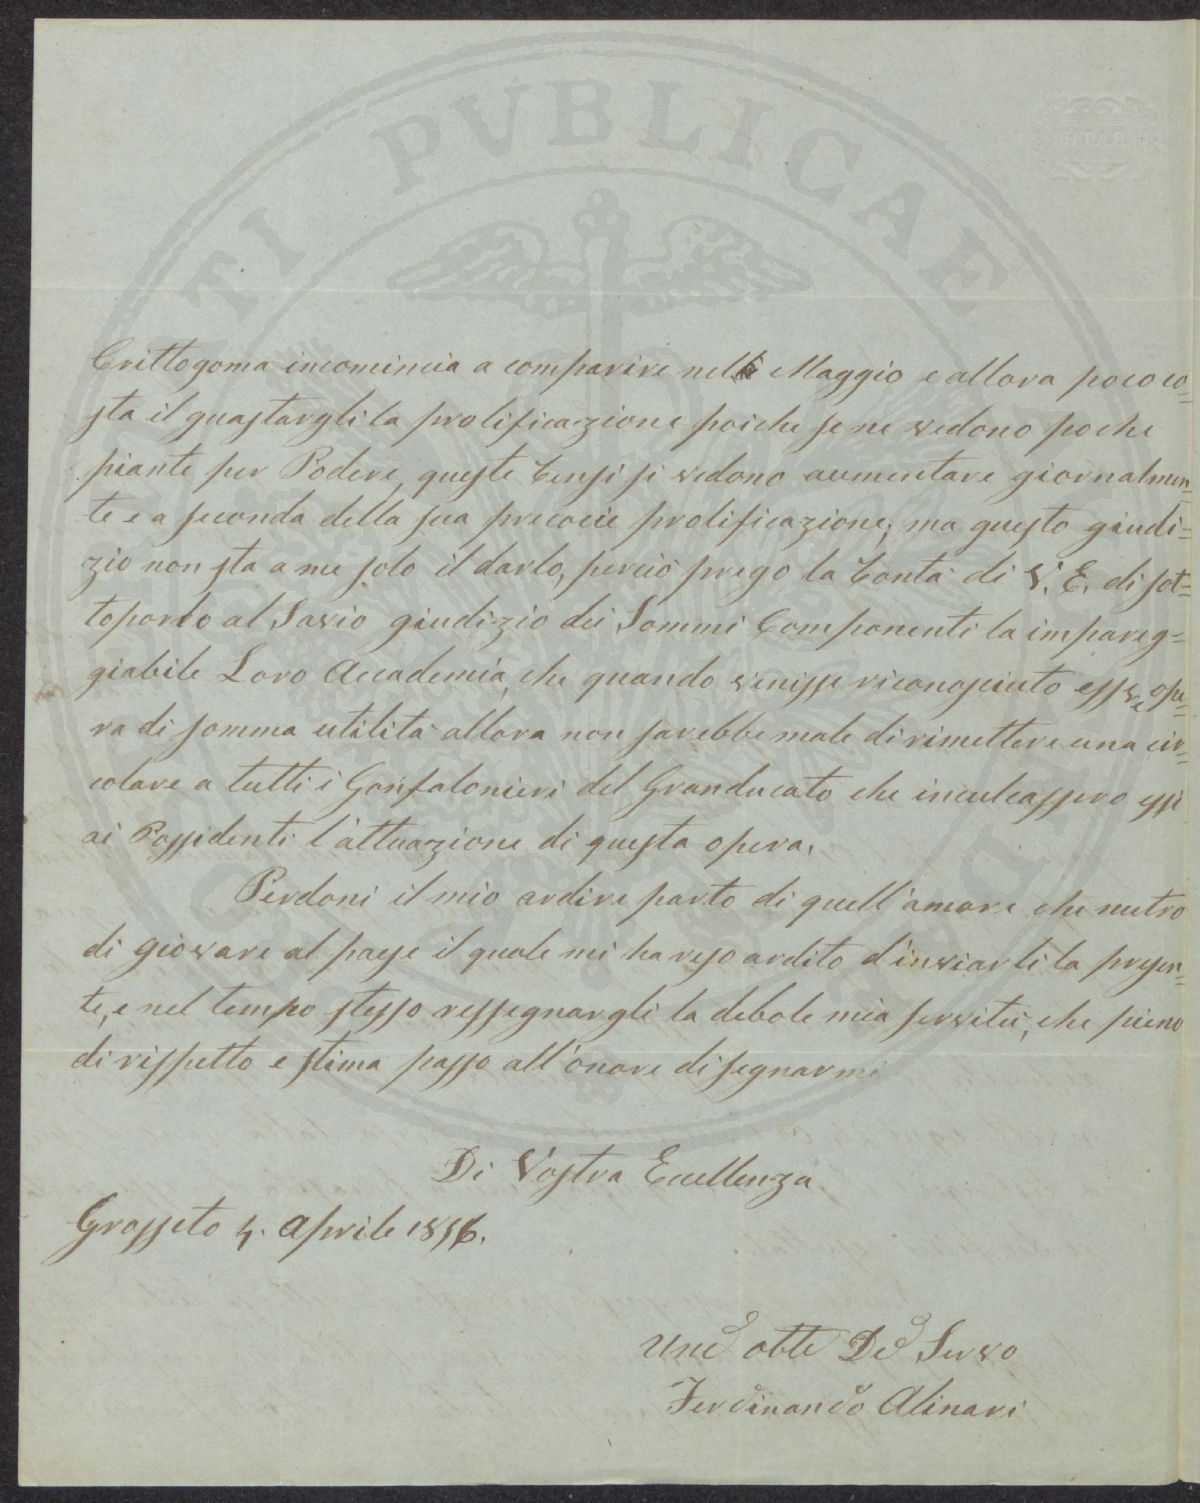 Crittogoma incomincia a comparire nel Maggio e allora poco co=
sta il guastargli la prolificazione poiche se ne vedono poche
piante per Podere, queste bensi si vedono aumentare giornalmen=
te e a seconda della sua precocie prolificazione; ma questo giudi=
zio non sta a me solo il darlo, perciò prego la bontà di V. E. di sot=
toporlo al Savio giudizio dei Sommi Componenti la impareg=
giabile Loro Accademia, che quando venisse riconosciuto essere ope=
ra di somma utilità allora non sarebbe male di rimettere una cir=
colare a tutti i Gonfalonieri del Granducato che inculcassero essi
ai Possidenti l'attuazione di questa opera.
Perdoni il mio ardire parto di quell'amore che nutro
di giovare al paese il quale mi ha reso ardito d'inviarli la presen=
te, e nel tempo stesso ressegnargli la debole mia servitù, che pieno
di rispetto e stima passo all'onore di segnarmi
Di Vostra Eccellenza
Grosseto 4. Aprile 1856.
Umo obbte Do Servo
Ferdinando Alinari
PVBLICAE